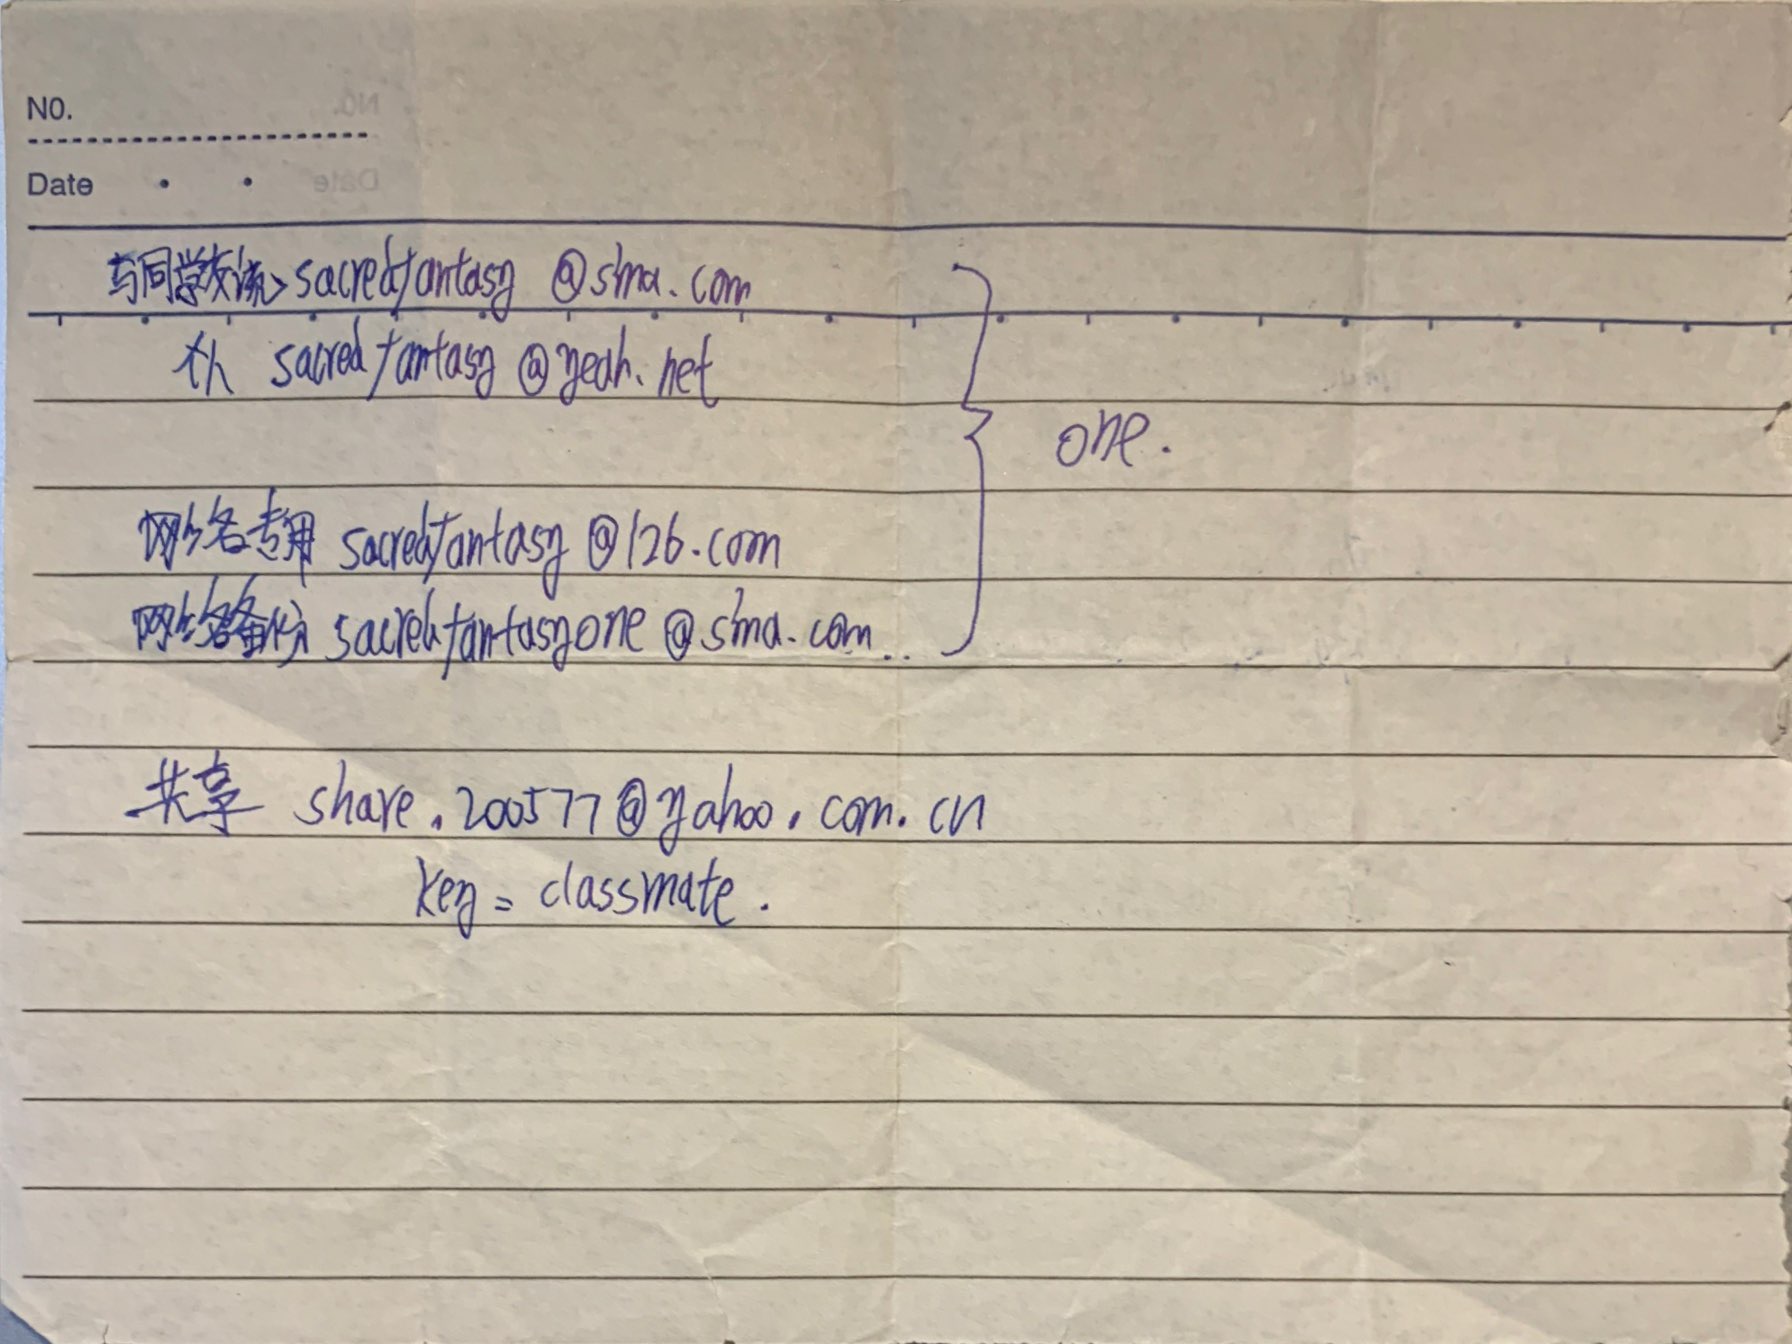 NO.
Date
与同学交流 sacredfantasy @sina.com
sacredfantasy @yeah.net
one.
网络名专用 sacredfantasy @126.com
网络备份 sacredfantasyone @sina.com..
共享 share.200577@yahoo.com.cn
key = classmate.